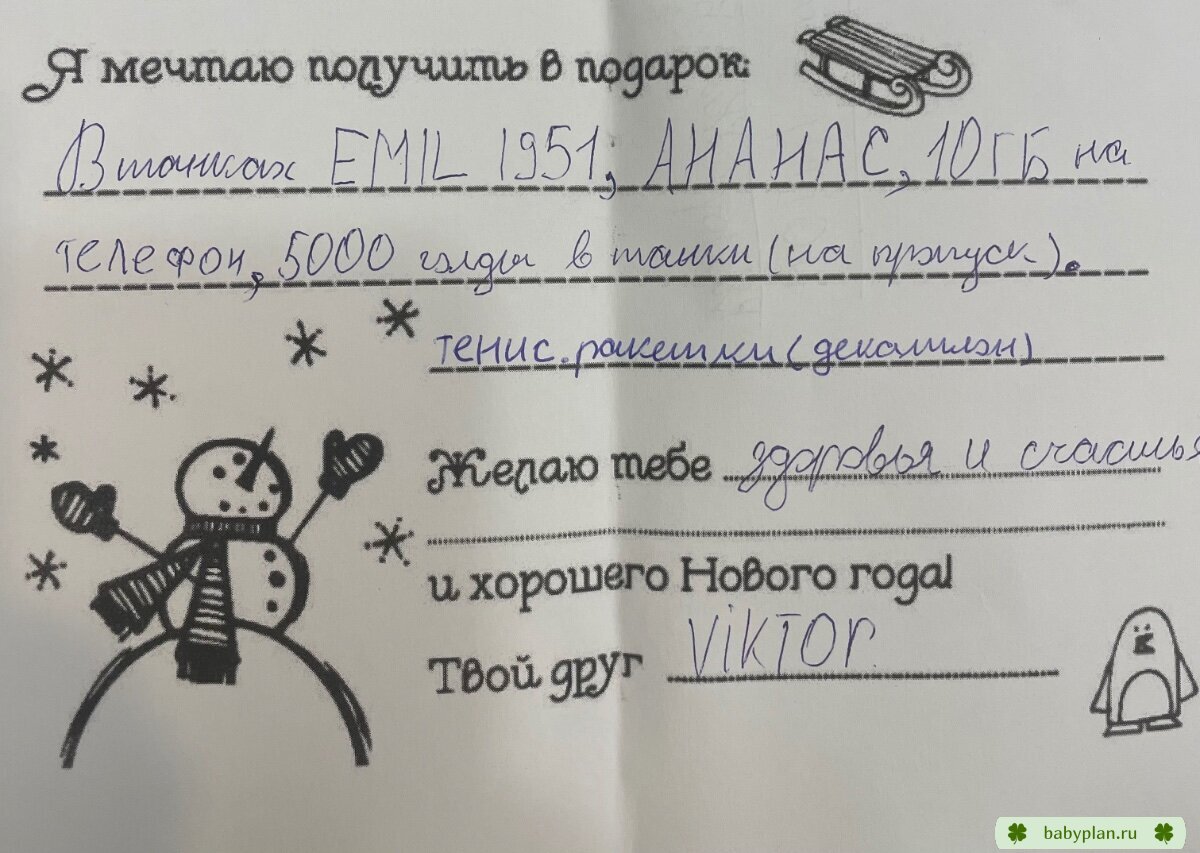 Я мечтаю получить в подарок:
В танках EMIL 1951, АНАНАС, 10ГБ на
телефон, 5000 голды в танки (на пропуск).
тенис. ракетки (декатлон)
Желаю тебе здоровья и счастья
и хорошего Нового года!
Твой друг Viktor.
babyplan.ru